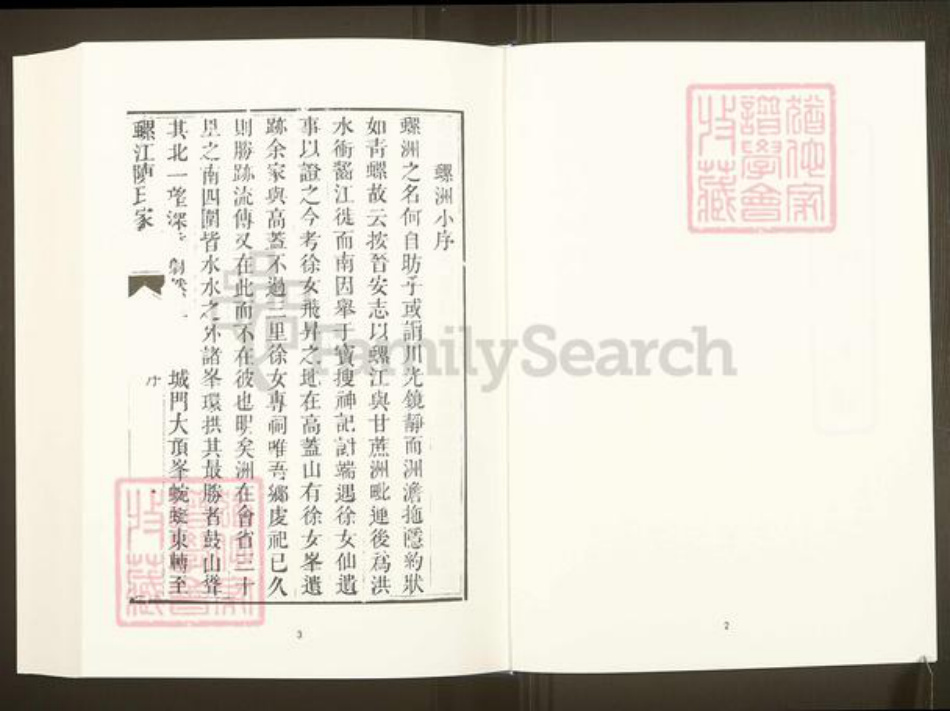 螺洲小序
螺洲之名何自昉乎或謂川光鏡靜而洲澹拖隱約狀
如青螺故云按晉安志以螺江與甘蔗洲毗連後為洪
水衝齧江徙而南因舉于寶搜神記謝端遇徐女仙遺
事以證之今考徐女飛昇之地在高蓋山有徐女峯遺
跡余家與高蓋不過二里徐女專祠唯吾鄉虔祀已久
則勝跡流傳又在此而不在彼也明矣洲在會省三十
里之南四圍皆水水之外諸峯環拱其最勝者鼓山聳
其北一望深 城門大頂峯蜿蜒東轉至
螺江陳氏家
3
2
猶他家譜學會收藏
FamilySearch